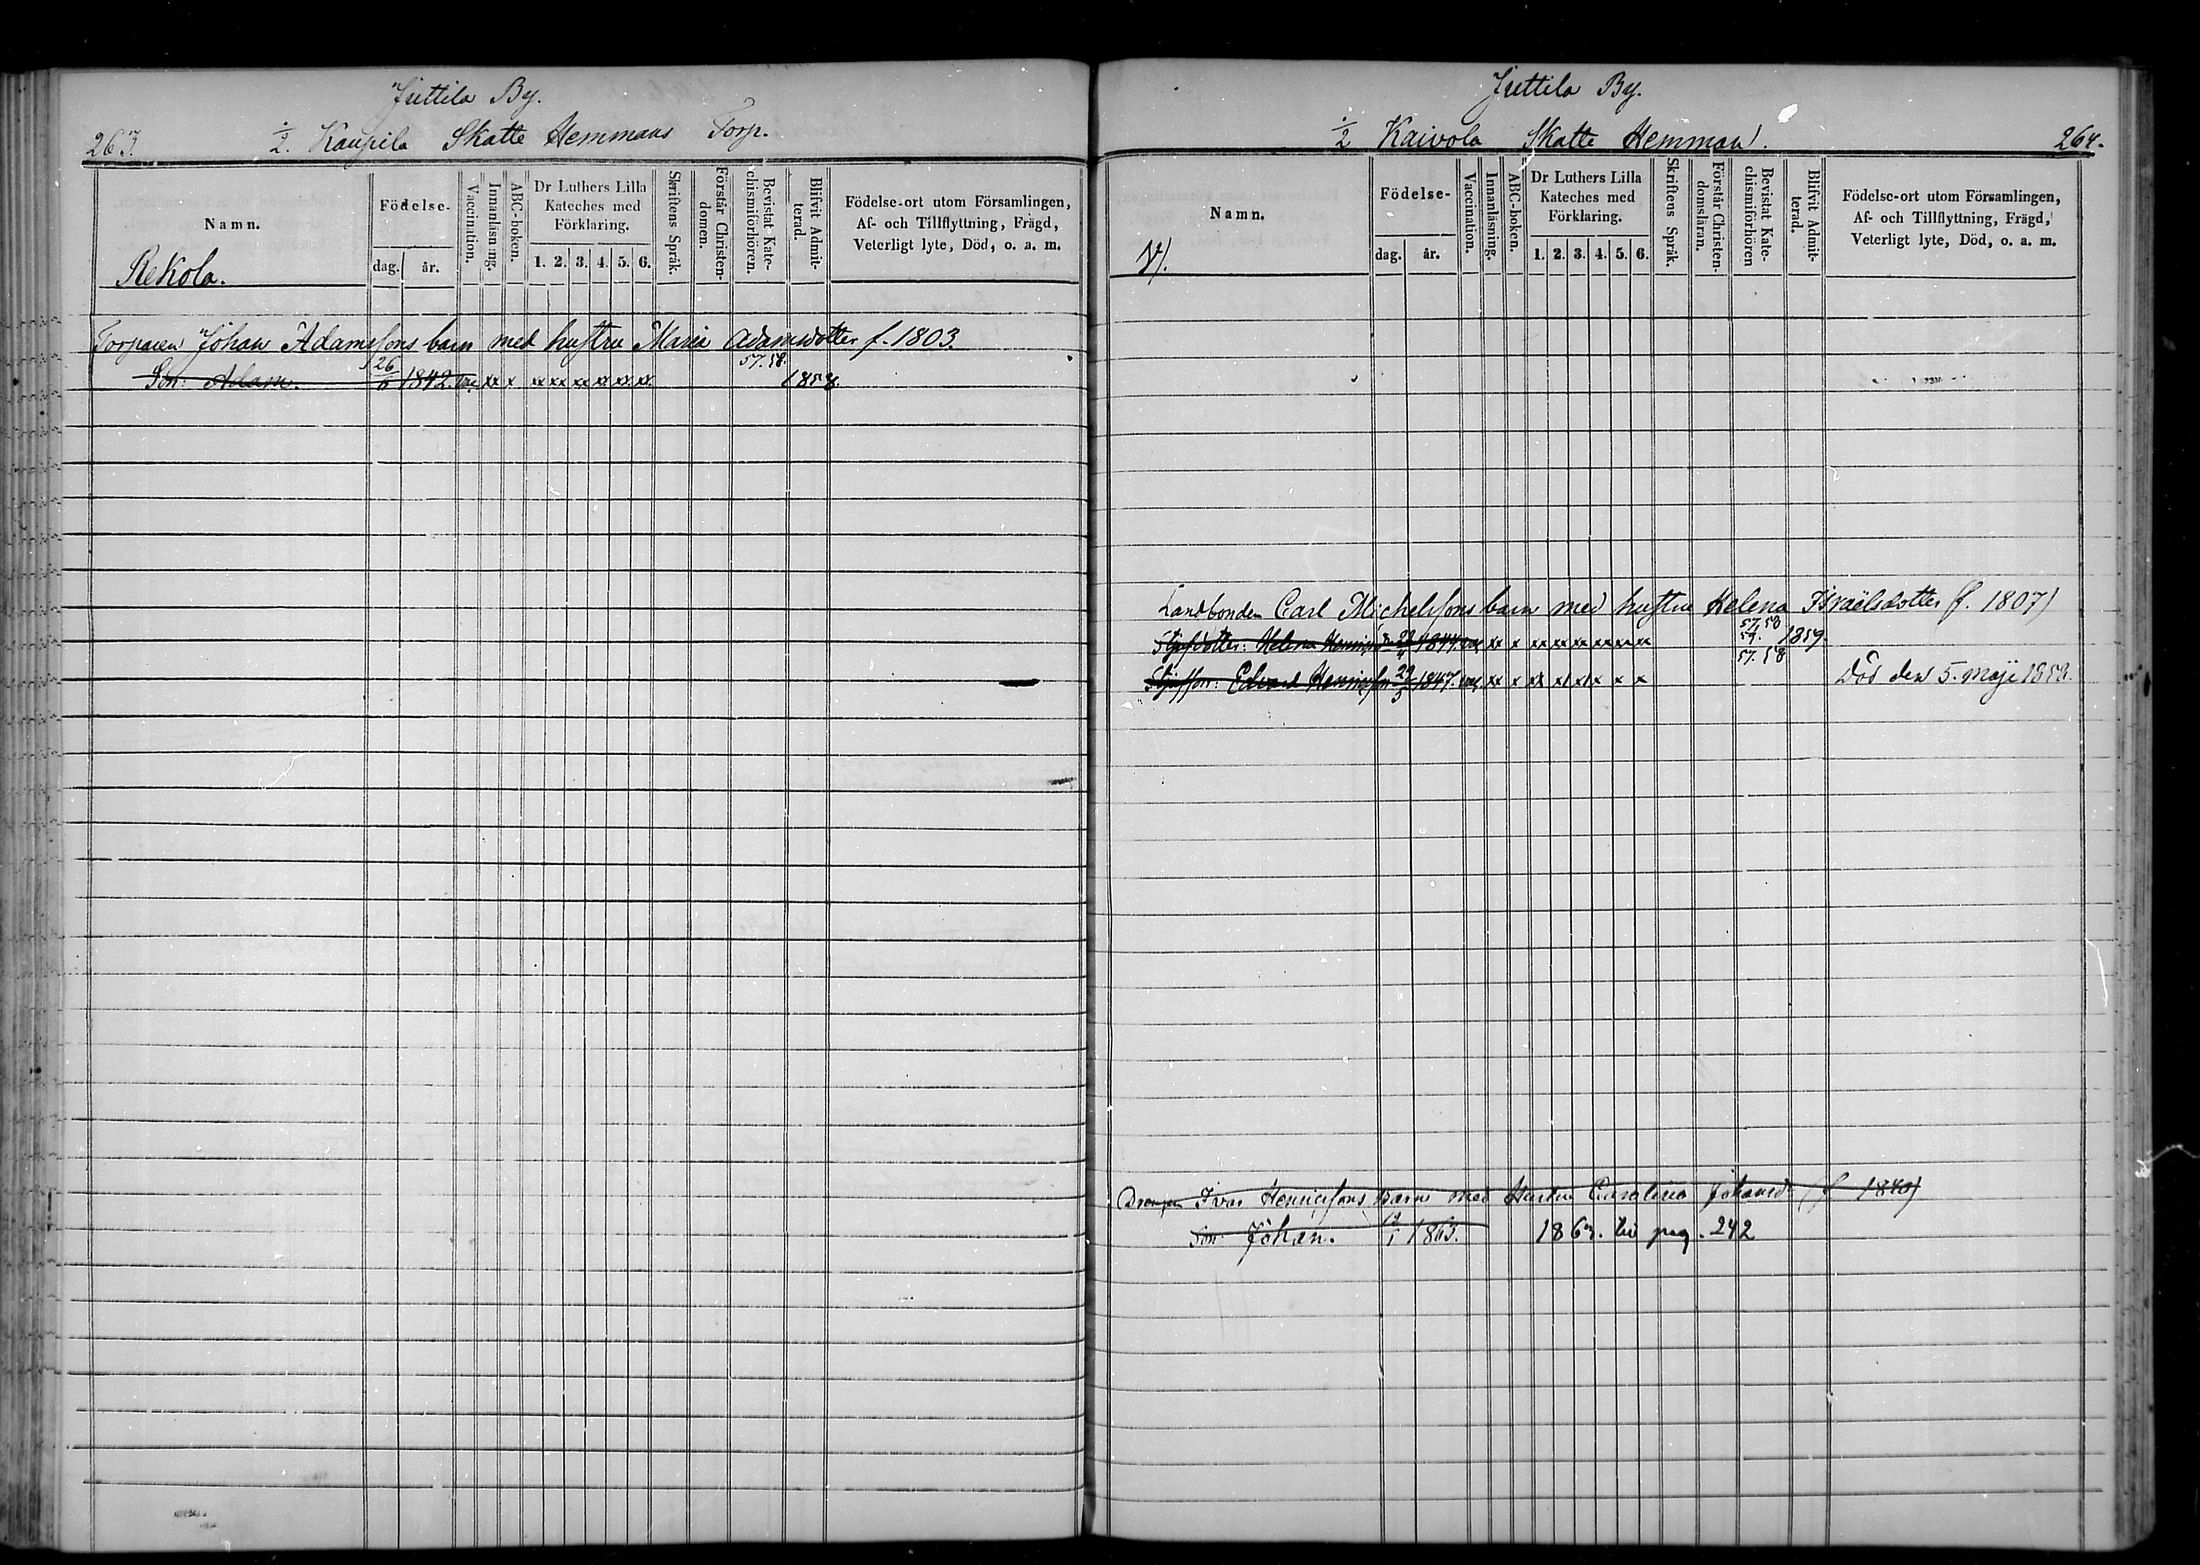 Juttila By.
263. 1/2. Kaupila Skatte Hemmans Torp.
Namn.
Födelse-
dag. år.
Vaccination.
Innanläsning.
ABC-boken.
Dr Luthers Lilla Kateches med Förklaring.
1. 2. 3. 4. 5. 6.
Skriftens Språk.
Förstår Christendomen.
Bevistat Katechismiförhören.
Blifvit Admitterad.
Födelse-ort utom Församlingen,
Af- och Tillflyttning, Frägd,
Veterligt lyte, Död, o. a. m.
Rekola.
Torparen Johan Adamssons barn med hustru Maria Adamsdotter f. 1803.
Son: Adam. 26/6 1842. vac. xx x xx xx xx xx xx xx 57. 58. 1858.
Juttila By.
1/2 Kaivola Skatte Hemman. 264.
Namn.
Födelse-
dag. år.
Vaccination.
Innanläsning.
ABC-boken.
Dr Luthers Lilla Kateches med Förklaring.
1. 2. 3. 4. 5. 6.
Skriftens Språk.
Förstår Christendomsläran.
Bevistat Katechismiförhören
Blifvit Admitterad.
Födelse-ort utom Församlingen,
Af- och Tillflyttning, Frägd,
Veterligt lyte, Död, o. a. m.
Landbonden Carl Michelssons barn med hustru Helena Israëlsdotter (f. 1807)
Stjufdotter: Helena Henricsdr 22/4 1844. vac xx x xx xx xx xx xx xx 57. 58 59. 1859.
Stjufson: Edvard Henricsson 29/5 1847. vac. xx x xx xx xx x x x 57. 58 Död den 5. Maji 1858.
Drengen Ivar Henricssons barn med Hustru Carolina Johansd. (f. 1840)
Son: Johan. 12/1 1863. 1863. till pag. 242